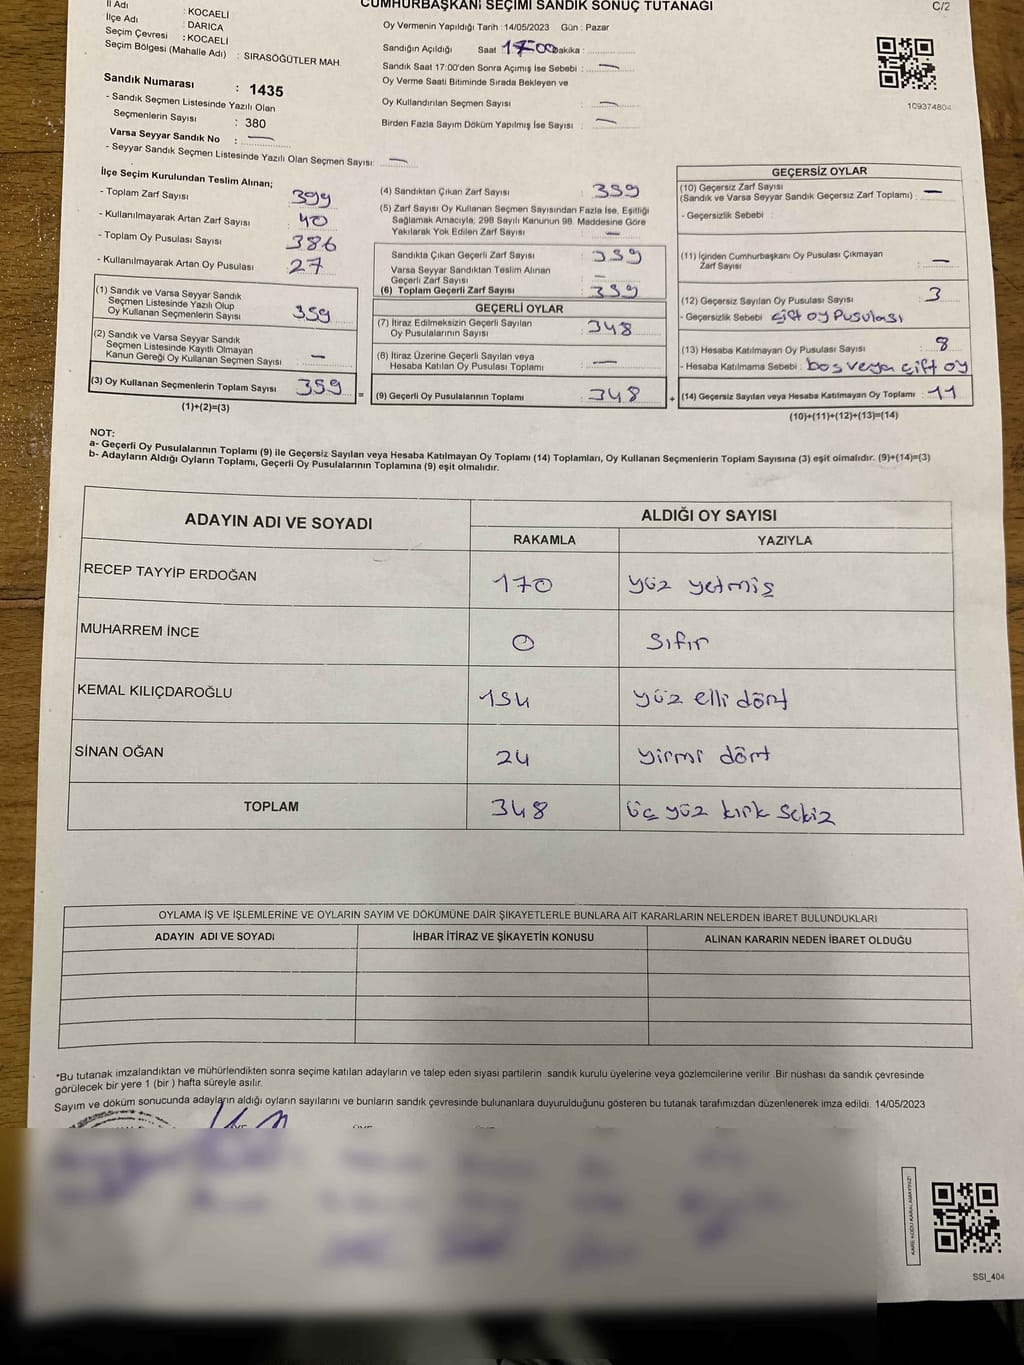 CUMHURBAŞKANI SEÇİMİ SANDIK SONUÇ TUTANAĞI
C/2
İl Adı : KOCAELİ
İlçe Adı : DARICA
Seçim Çevresi : KOCAELİ
Seçim Bölgesi (Mahalle Adı) : SIRASÖĞÜTLER MAH.
Sandık Numarası : 1435
- Sandık Seçmen Listesinde Yazılı Olan
Seçmenlerin Sayısı : 380
Varsa Seyyar Sandık No : —
- Seyyar Sandık Seçmen Listesinde Yazılı Olan Seçmen Sayısı: —
Oy Vermenin Yapıldığı Tarih : 14/05/2023 Gün : Pazar
Sandığın Açıldığı Saat 17:00 Dakika :
Sandık Saat 17:00'den Sonra Açımış İse Sebebi : —
Oy Verme Saati Bitiminde Sırada Bekleyen ve
Oy Kullandırılan Seçmen Sayısı : —
Birden Fazla Sayım Döküm Yapılmış İse Sayısı : —
109374804
İlçe Seçim Kurulundan Teslim Alınan;
- Toplam Zarf Sayısı 399
- Kullanılmayarak Artan Zarf Sayısı 40
- Toplam Oy Pusulası Sayısı 386
- Kullanılmayarak Artan Oy Pusulası 27
(1) Sandık ve Varsa Seyyar Sandık
Seçmen Listesinde Yazılı Olup
Oy Kullanan Seçmenlerin Sayısı 359
(2) Sandık ve Varsa Seyyar Sandık
Seçmen Listesinde Kayıtlı Olmayan
Kanun Gereği Oy Kullanan Seçmen Sayısı —
(3) Oy Kullanan Seçmenlerin Toplam Sayısı 359
(1)+(2)=(3)
(4) Sandıktan Çıkan Zarf Sayısı : 359
(5) Zarf Sayısı Oy Kullanan Seçmen Sayısından Fazla İse, Eşitliği
Sağlamak Amacıyla, 298 Sayılı Kanunun 98. Maddesine Göre
Yakılarak Yok Edilen Zarf Sayısı : —
Sandıkta Çıkan Geçerli Zarf Sayısı : 359
Varsa Seyyar Sandıktan Teslim Alınan
Geçerli Zarf Sayısı : —
(6) Toplam Geçerli Zarf Sayısı : 359
GEÇERLİ OYLAR
(7) İtiraz Edilmeksizin Geçerli Sayılan
Oy Pusulalarının Sayısı : 348
(8) İtiraz Üzerine Geçerli Sayılan veya
Hesaba Katılan Oy Pusulası Toplamı : —
= (9) Geçerli Oy Pusulalarının Toplamı : 348
GEÇERSİZ OYLAR
(10) Geçersiz Zarf Sayısı
(Sandık ve Varsa Seyyar Sandık Geçersiz Zarf Toplamı) : —
- Geçersizlik Sebebi :
(11) İçinden Cumhurbaşkanı Oy Pusulası Çıkmayan
Zarf Sayısı : —
(12) Geçersiz Sayılan Oy Pusulası Sayısı : 3
- Geçersizlik Sebebi : çift oy pusulası
(13) Hesaba Katılmayan Oy Pusulası Sayısı : 8
- Hesaba Katılmama Sebebi : boş veya çift oy
+ (14) Geçersiz Sayılan veya Hesaba Katılmayan Oy Toplamı : 11
(10)+(11)+(12)+(13)=(14)
NOT:
a- Geçerli Oy Pusulalarının Toplamı (9) ile Geçersiz Sayılan veya Hesaba Katılmayan Oy Toplamı (14) Toplamları, Oy Kullanan Seçmenlerin Toplam Sayısına (3) eşit olmalıdır. (9)+(14)=(3)
b- Adayların Aldığı Oyların Toplamı, Geçerli Oy Pusulalarının Toplamına (9) eşit olmalıdır.
ADAYIN ADI VE SOYADI ALDIĞI OY SAYISI
RAKAMLA YAZIYLA
RECEP TAYYİP ERDOĞAN 170 yüz yetmiş
MUHARREM İNCE 0 sıfır
KEMAL KILIÇDAROĞLU 154 yüz elli dört
SİNAN OĞAN 24 yirmi dört
TOPLAM 348 üç yüz kırk sekiz
OYLAMA İŞ VE İŞLEMLERİNE VE OYLARIN SAYIM VE DÖKÜMÜNE DAİR ŞİKAYETLERLE BUNLARA AİT KARARLARIN NELERDEN İBARET BULUNDUKLARI
ADAYIN ADI VE SOYADI İHBAR İTİRAZ VE ŞİKAYETİN KONUSU ALINAN KARARIN NEDEN İBARET OLDUĞU
*Bu tutanak imzalandıktan ve mühürlendikten sonra seçime katılan adayların ve talep eden siyasi partilerin sandık kurulu üyelerine veya gözlemcilerine verilir. Bir nüshası da sandık çevresinde
görülecek bir yere 1 (bir ) hafta süreyle asılır.
Sayım ve döküm sonucunda adayların aldığı oyların sayılarını ve bunların sandık çevresinde bulunanlara duyurulduğunu gösteren bu tutanak tarafımızdan düzenlenerek imza edildi. 14/05/2023
SSI_404